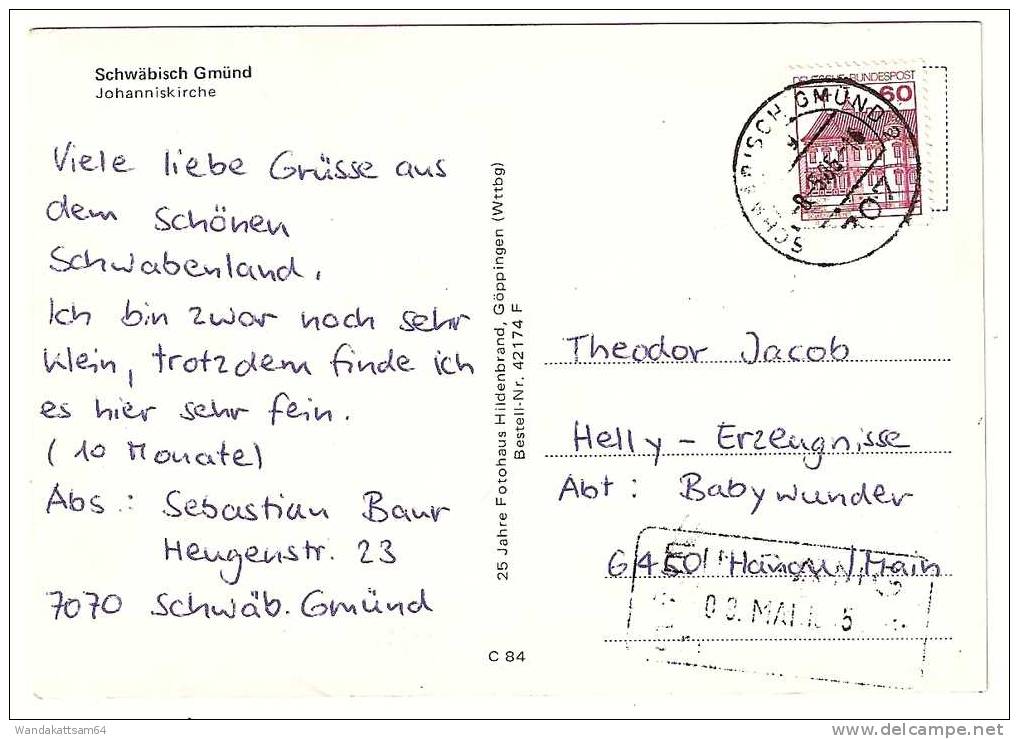 Schwäbisch Gmünd
Johanniskirche
Viele liebe Grüsse aus
dem schönen
Schwabenland.
Ich bin zwar noch sehr
klein, trotzdem finde ich
es hier sehr fein.
(10 Monate)
Abs.: Sebastian Baur
Heugenstr. 23
7070 Schwäb. Gmünd
25 Jahre Fotohaus Hildenbrand, Göppingen (Wttbg)
Bestell-Nr. 42174 F
C 84
DEUTSCHE BUNDESPOST
60
SCHWÄBISCH GMÜND
707
Theodor Jacob
Helly - Erzeugnisse
Abt: Babywunder
6450 Hanau/Main
MAI
Wandakattsam64
www.delcampe.net